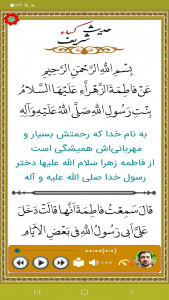 حدیث شریف کساء
بِسْمِ اللَّهِ الرَّحْمَنِ الرَّحِيمِ
عَنْ فَاطِمَةَ الزَّهْرَاءِ عَلَيْهَا السَّلَامُ
بِنْتِ رَسُولِ اللَّهِ صَلَّى اللَّهُ عَلَيْهِ وَآلِهِ
به نام خدا که رحمتش بسیار و
مهربانی‌اش همیشگی است
از فاطمه زهرا سلام الله علیها دختر
رسول خدا صلی الله علیه و آله
قَالَ سَمِعْتُ فَاطِمَةَ أَنَّهَا قَالَتْ دَخَلَ
عَلَيَّ أَبِي رَسُولُ اللَّهِ فِي بَعْضِ الْأَيَّامِ
100